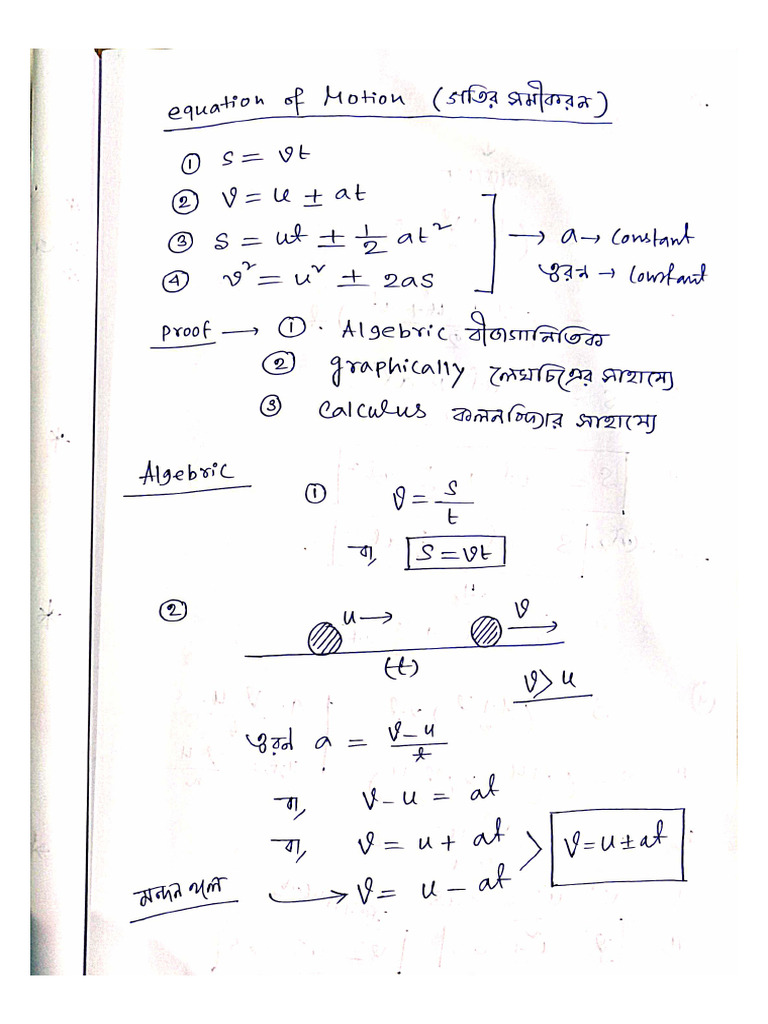 equation of Motion (গতির সমীকরন)
① S = vt
② v = u ± at
③ S = ut ± 1/2 at²
④ v² = u² ± 2as
→ a → Constant
ত্বরন → Constant
Proof → ① · Algebric বীজগানিতিক
② graphically লেখচিত্রের সাহায্যে
③ Calculus কলনবিদ্যার সাহায্যে
Algebric
① v = S/t
বা, S = vt
② u → v →
(t)
v > u
ত্বরন a = v - u / t
বা, v - u = at
বা, v = u + at
v = u ± at
মন্দন হলে → v = u - at